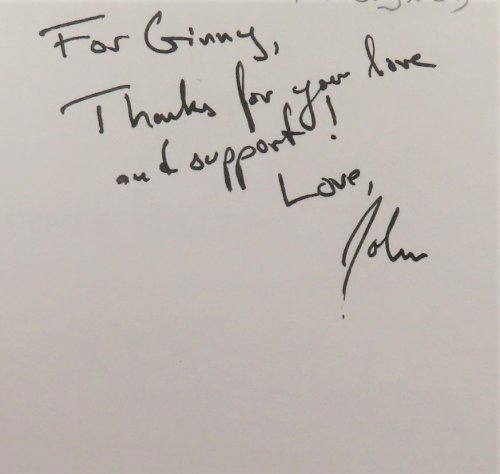 For Ginny,
Thanks for your love
and support!
Love,
John